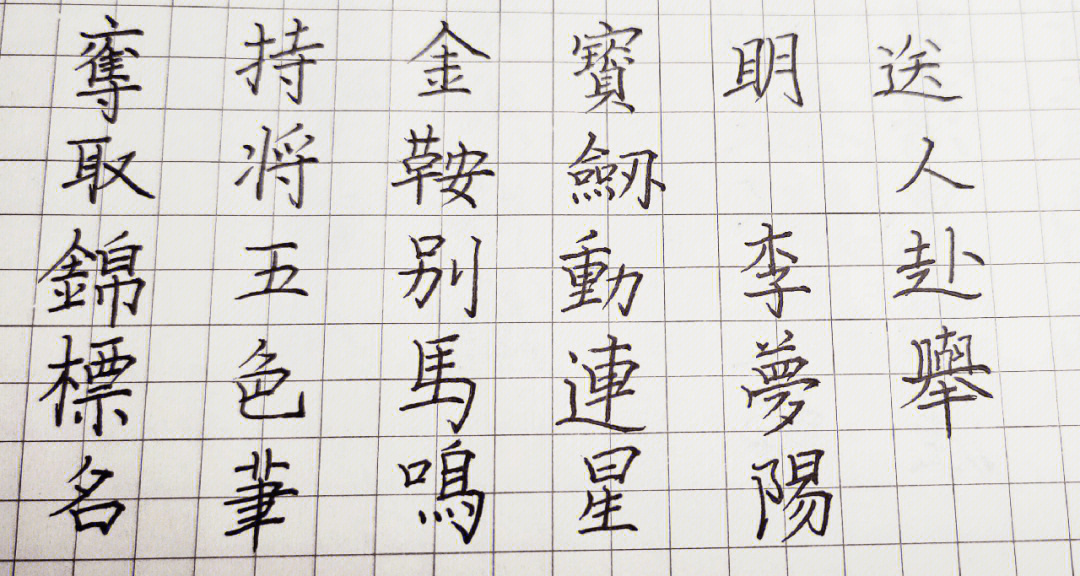 送人赴舉
明 李夢陽
寶劒動連星
金鞍别馬鳴
持將五色筆
奪取錦標名